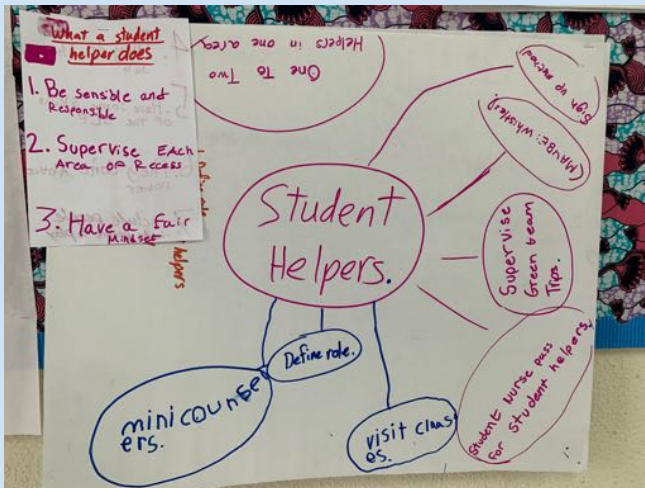 What a student
helper does
1. Be sensible and
Responsible
2. Supervise Each
Area OF Recess
3. Have a fair
Mindset
One To Two
Helpers in one area
Sign up method
(MAYBE: Whistles)
Student
Helpers.
Supervise
Green team
Trips.
Student Nurse pass
for Student helpers.
Define role.
minicounsel
ers.
visit class
es.
helpers